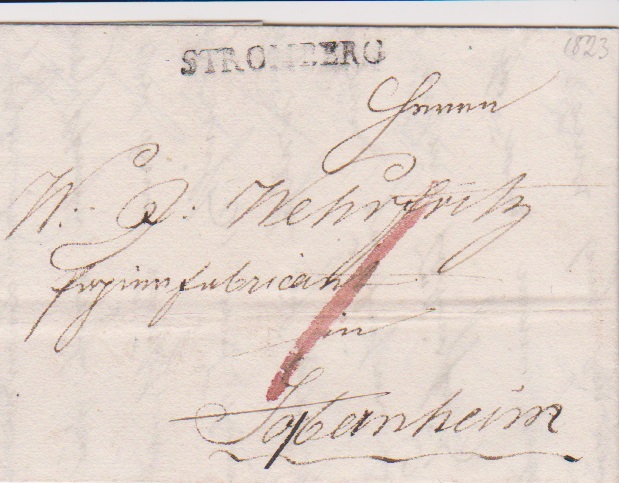 STROMBERG
1823
Herren
W. J: Wehrfritz
papierfabricant
in